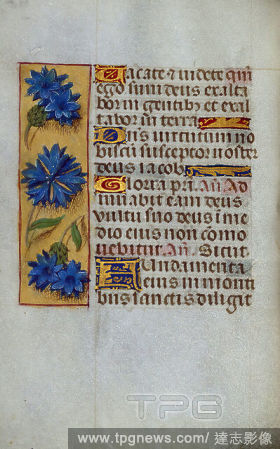 Vacate & videte qm
ego sum deus exalta
bor in gentibȝ et exal
tabor in terra
Dñs virtutum no
biscū susceptor noster
deus iacob
Gloria pri. Añ. Ad
iuuabit eam deus
vultu suo deus ī me
dio eius non como
uebitur. Añ. Sicut
Fundamenta
eius in monti
bus sanctis diligit
TPG
www.tpgnews.com/ 達志影像